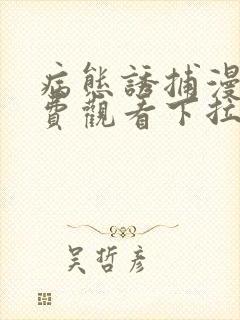 病態誘捕漫
費觀看下拉
吴哲彥